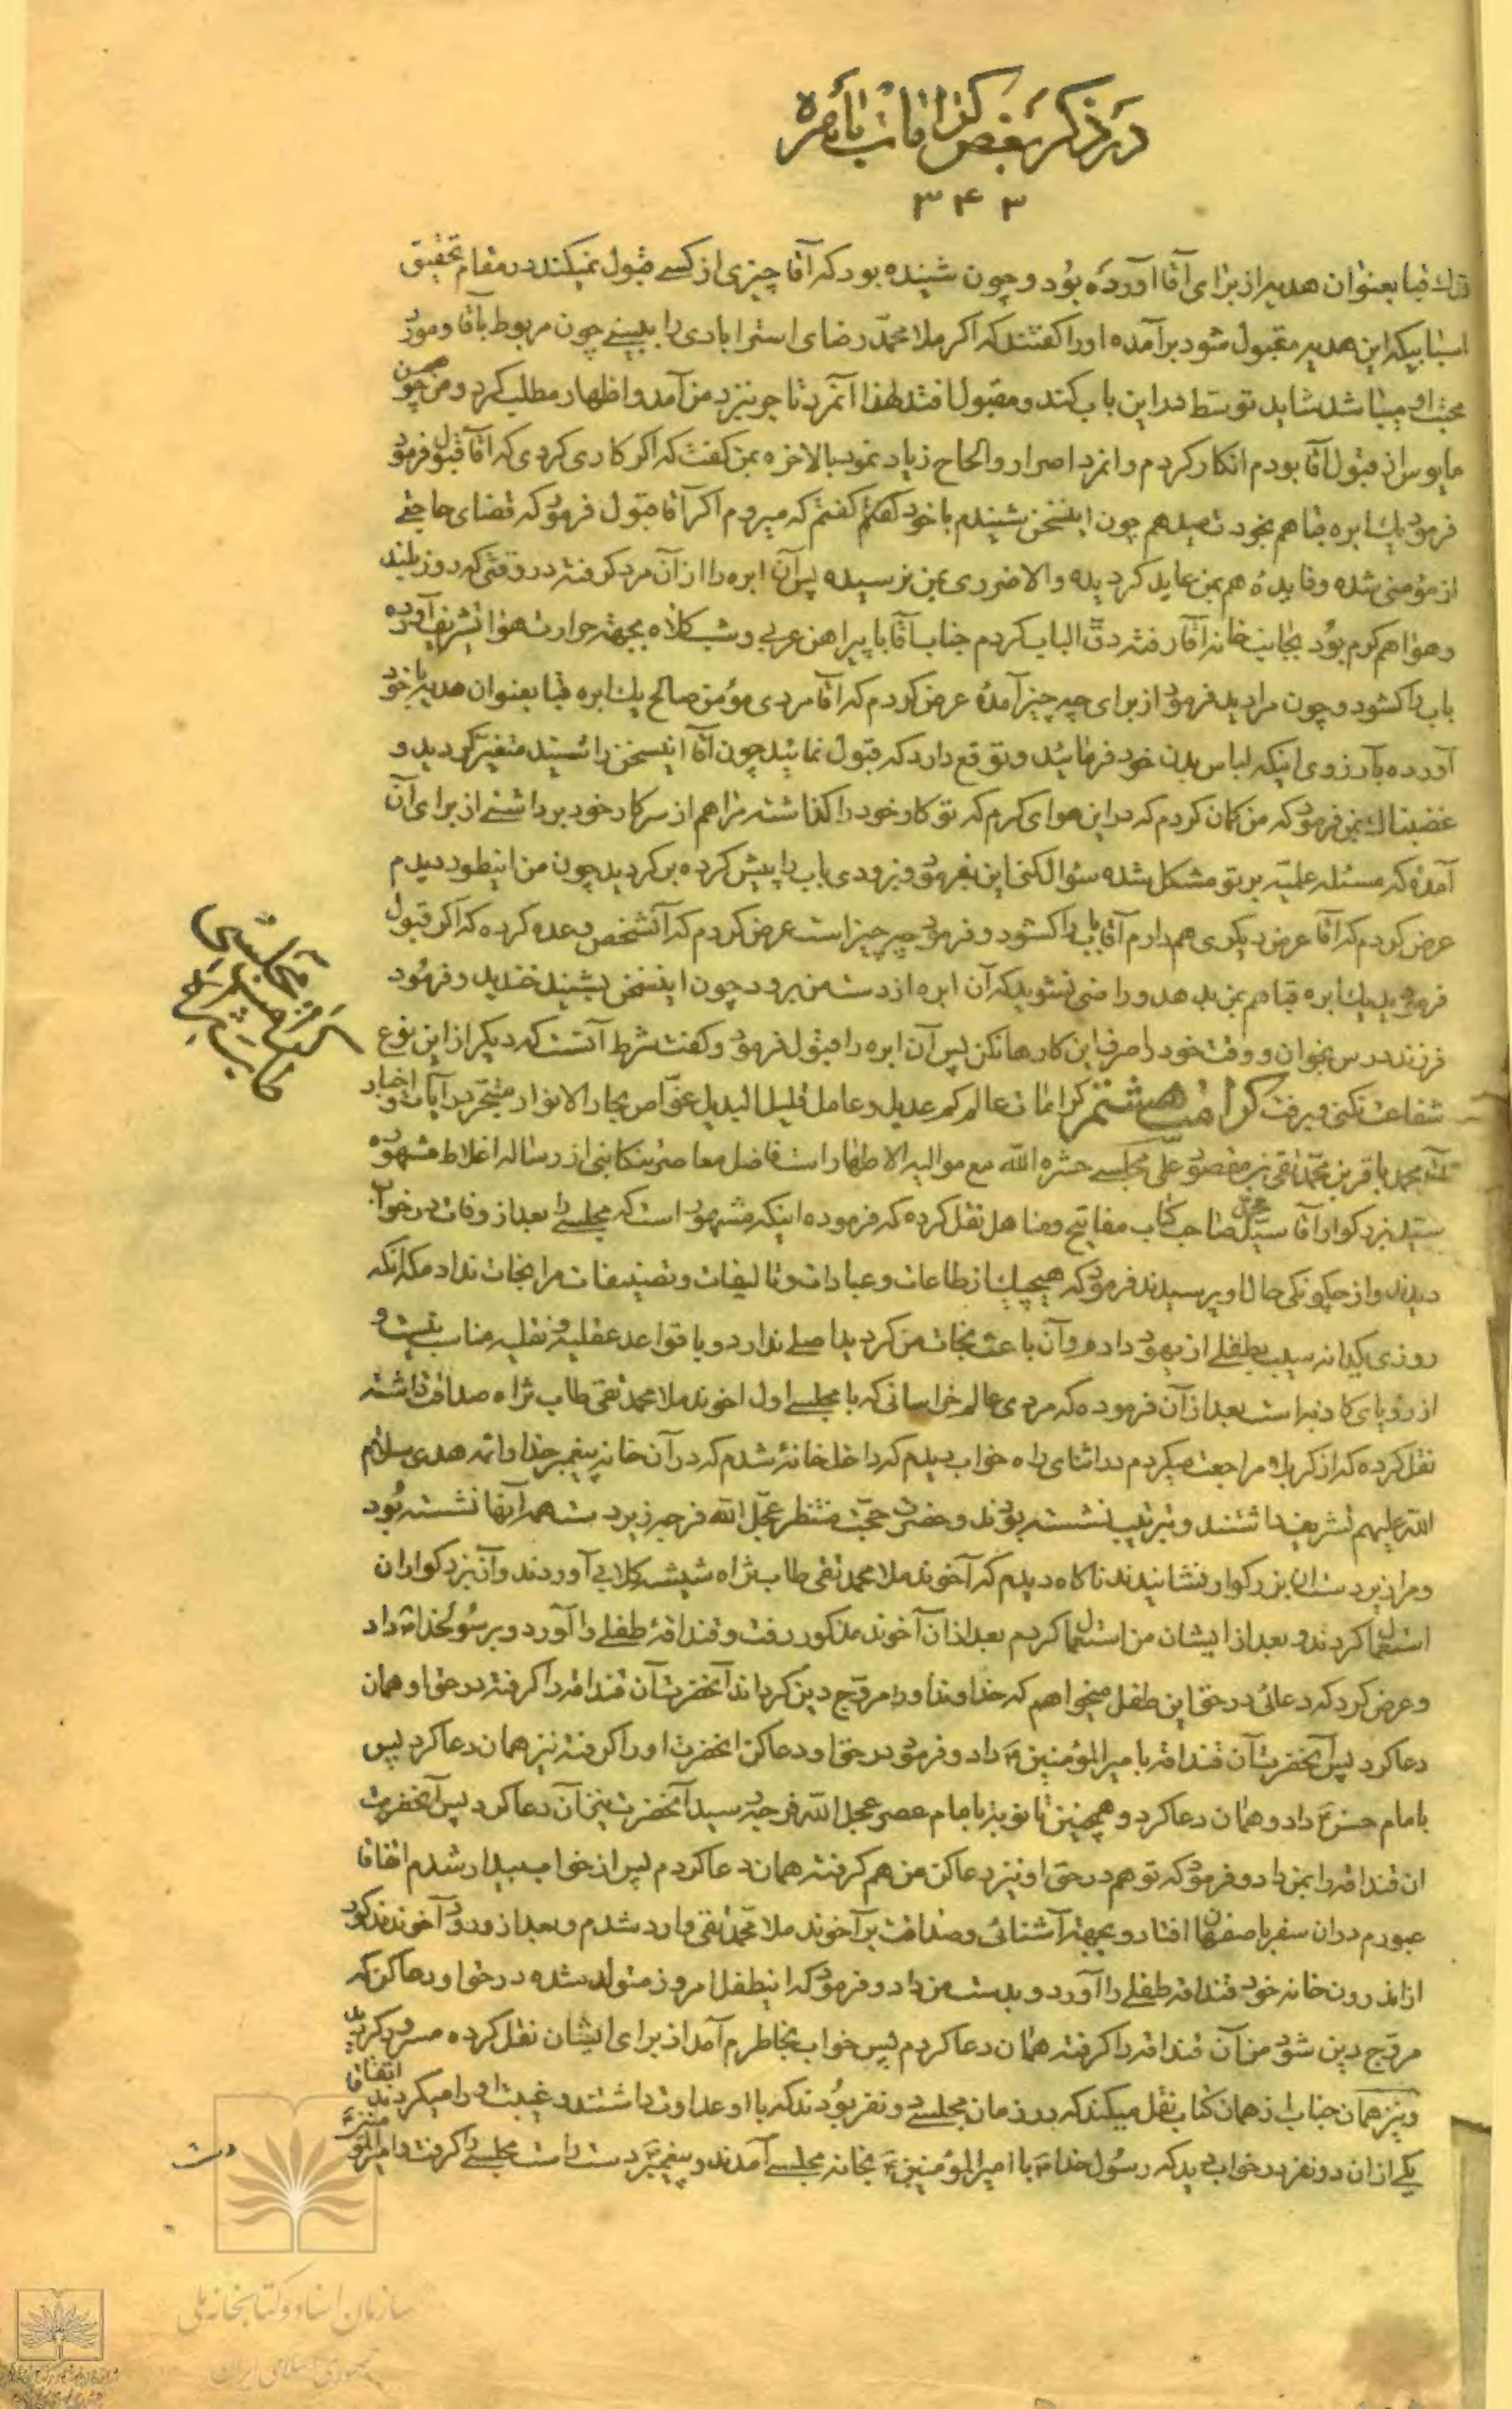 در ذکر بعض کرامات باهره
۳۴۳
قدک قبا بعنوان هدیه از برای آقا آورده بود و چون شنیده بود که آقا چیزی از کسی قبول نمیکند در مقام تحقیق
اسبابیکه این هدیه مقبول شود برآمده او را گفتند که اگر ملا محمد رضای استرابادی را ببینی چون مربوط بآقا و مورد
محبت او میباشد شاید توسط در این باب کند و مقبول افتد لهذا آنمرد تاجر بنزد من آمد و اظهار مطلب کرد و من چون
مایوس از قبول آقا بودم انکار کردم و انمرد اصرار و الحاح زیاد نمود بالاخره بمن گفت که اگر کاری کردی که آقا قبول فرمود
فرمود یک ابره قبا هم بخودت میدهم چون اینسخن شنیدم با خود گفتم که میروم اگر آقا قبول فرمود که قضای حاجتی
از مؤمنی شده و فایدهٔ هم بمن عاید گردیده والا ضرری بمن نرسیده پس آن ابره را از آن مرد گرفته در وقتی که روز بلند
و هوا هم گرم بود بجانب خانه آقا رفته دق الباب کردم جناب آقا با پیراهن عربی و شب کلاه بجهة حرارت هوا تشریف آورده
باب را گشود و چون مرا دید فرمود از برای چه چیز آمدهٔ عرض کردم که آقا مردی مؤمن صالح یک ابره قبا بعنوان هدیه با خود
آورده بآرزوی اینکه لباس بدن خود فرمائید و توقع دارد که قبول نمائید چون آقا اینسخن را شنید متغیر گردید و
غضبناک بمن فرمود که من گمان کردم که در این هوای گرم که تو کار خود را گذاشته مرا هم از سر کار خود برداشتی از برای آن
آمدهٔ که مسئله علمیه بر تو مشکل شده سئوال کنی این بفرمود و بزودی باب را پیش کرده برگردید چون من اینطور دیدم
عرض کردم که آقا عرض دیگری هم دارم آقا باب را گشود و فرمود چه چیز است عرض کردم که آنشخص وعده کرده که اگر قبول
فرمودید یک ابره قبا هم بمن بدهد و راضی نشوید که آن ابره از دست من برود چون اینسخن بشنید خندید و فرمود
فرزند درس بخوان و وقت خود را صرف این کارها نکن پس آن ابره را قبول فرمود و گفت شرط آنست که دیگر از این نوع
شفاعت نکنی و برفت کرامت هشتم کرامات عالم کم عدیل و عامل قلیل البدیل غواص بحار الانوار متبحر در آیات و اخبار
محمد باقر بن محمد تقی بن مقصود علی مجلسی حشره الله مع موالیه الاطهار است فاضل معاصر تنکابنی از رساله اغلاط مشهوره
سید بزرگوار آقا سید محمد صاحب کتاب مفاتیح و مناهل نقل کرده که فرموده اینکه مشهور است که مجلسی را بعد از وفات در خواب
دیدند و از چگونگی حال او پرسیدند فرمود که هیچیک از طاعات و عبادات و تالیفات و تصنیفات مرا نجات نداد مگر آنکه
روزی یکدانه سیب بطفلی از یهود دادم و آن باعث نجات من گردید اصلی ندارد و با قواعد عقلیه و نقلیه مناسب نیست و
از رؤیای کاذبه است بعد از آن فرموده که مردی عالم خراسانی که با مجلسی اول اخوند ملا محمد تقی طاب ثراه صداقت داشته
نقل کرده که از کربلا مراجعت میکردم در اثنای راه خواب دیدم که داخل خانهٔ شدم که در آن خانه پیغمبر خدا و ائمه هدی سلام
الله علیهم تشریف داشتند و بترتیب نشسته بودند و حضرت حجت منتظر عجل الله فرجه زیر دست همه آنها نشسته بود
و مرا زیر دست ان بزرگوار نشانیدند ناگاه دیدم که آخوند ملا محمد تقی طاب ثراه شیشه گلابی آوردند و آن بزرگواران
استعمال کردند و بعد از ایشان من استعمال کردم بعد از آن آخوند مذکور رفت و قنداقهٔ طفلی را آورد و برسولخدا ص داد
و عرض کرد که دعائی در حق این طفل میخواهم که خداوند او را مروج دین گرداند آنحضرت آن قنداقه را گرفته در حق او همان
دعا کرد پس آنحضرت آن قنداقه بامیر المؤمنین ع داد و فرمود در حق او دعا کن انحضرت او را گرفته نیز همان دعا کرد پس
بامام حسن ع داد و همان دعا کرد و همچنین تا نوبه بامام عصر عجل الله فرجه رسید آنحضرت نیز آن دعا کرد پس آنحضرت
ان قنداقه را بمن داد و فرمود که تو هم در حق او نیز دعا کن من هم گرفته همان دعا کردم پس از خواب بیدار شدم اتفاقا
عبورم در ان سفر باصفهان افتاد و بجهة آشنائی و صداقت بر آخوند ملا محمد تقی وارد شدم و بعد از ورود آخوند مذکور
از اندرون خانه خود قنداقه طفلی را آورد و بدست من داد و فرمود که اینطفل امروز متولد شده در حق او دعا کن که
مروج دین شود من آن قنداقه را گرفته همان دعا کردم پس خواب بخاطرم آمد از برای ایشان نقل کرده مسرور گردید
و نیز همان جناب از همان کتاب نقل میکند که در زمان مجلسی دو نفر بودند که با او عداوت داشتند و غیبت او را میکردند اتفاقا
یکی از ان دو نفر در خواب دید که رسول خدا ص با امیر المؤمنین ع بخانه مجلسی آمدند و پیغمبر ص دست راست مجلسی را گرفت و امیر المؤمنین ع
دست
سازمان اسناد و کتابخانه ملی
جمهوری اسلامی ایران